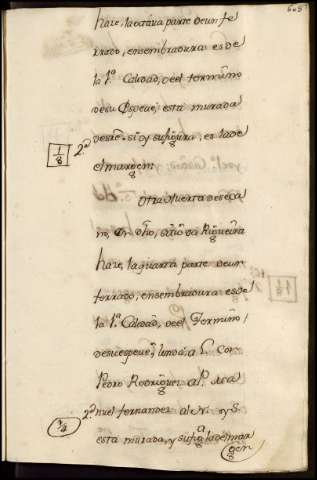 605
haze, la octava parte de un fe
rrado, en sembradura es de
la 1ª Calidad, de el termino
de su Especie, esta murada
de sre si y su figura, es la de
1/8 2ª
el margen
Otra Huerta de seca
no, en dho, sitio da Rigueira
haze, la quarta parte de un
ferrado, en sembradura es de
la 1ª Calidad, de el Termino
de su especie linda: a L. Con
Pedro Rodriguez al P.
2ª nuel fernandez al N. y S.
1/4
esta murada, y su figª la del mar
gen